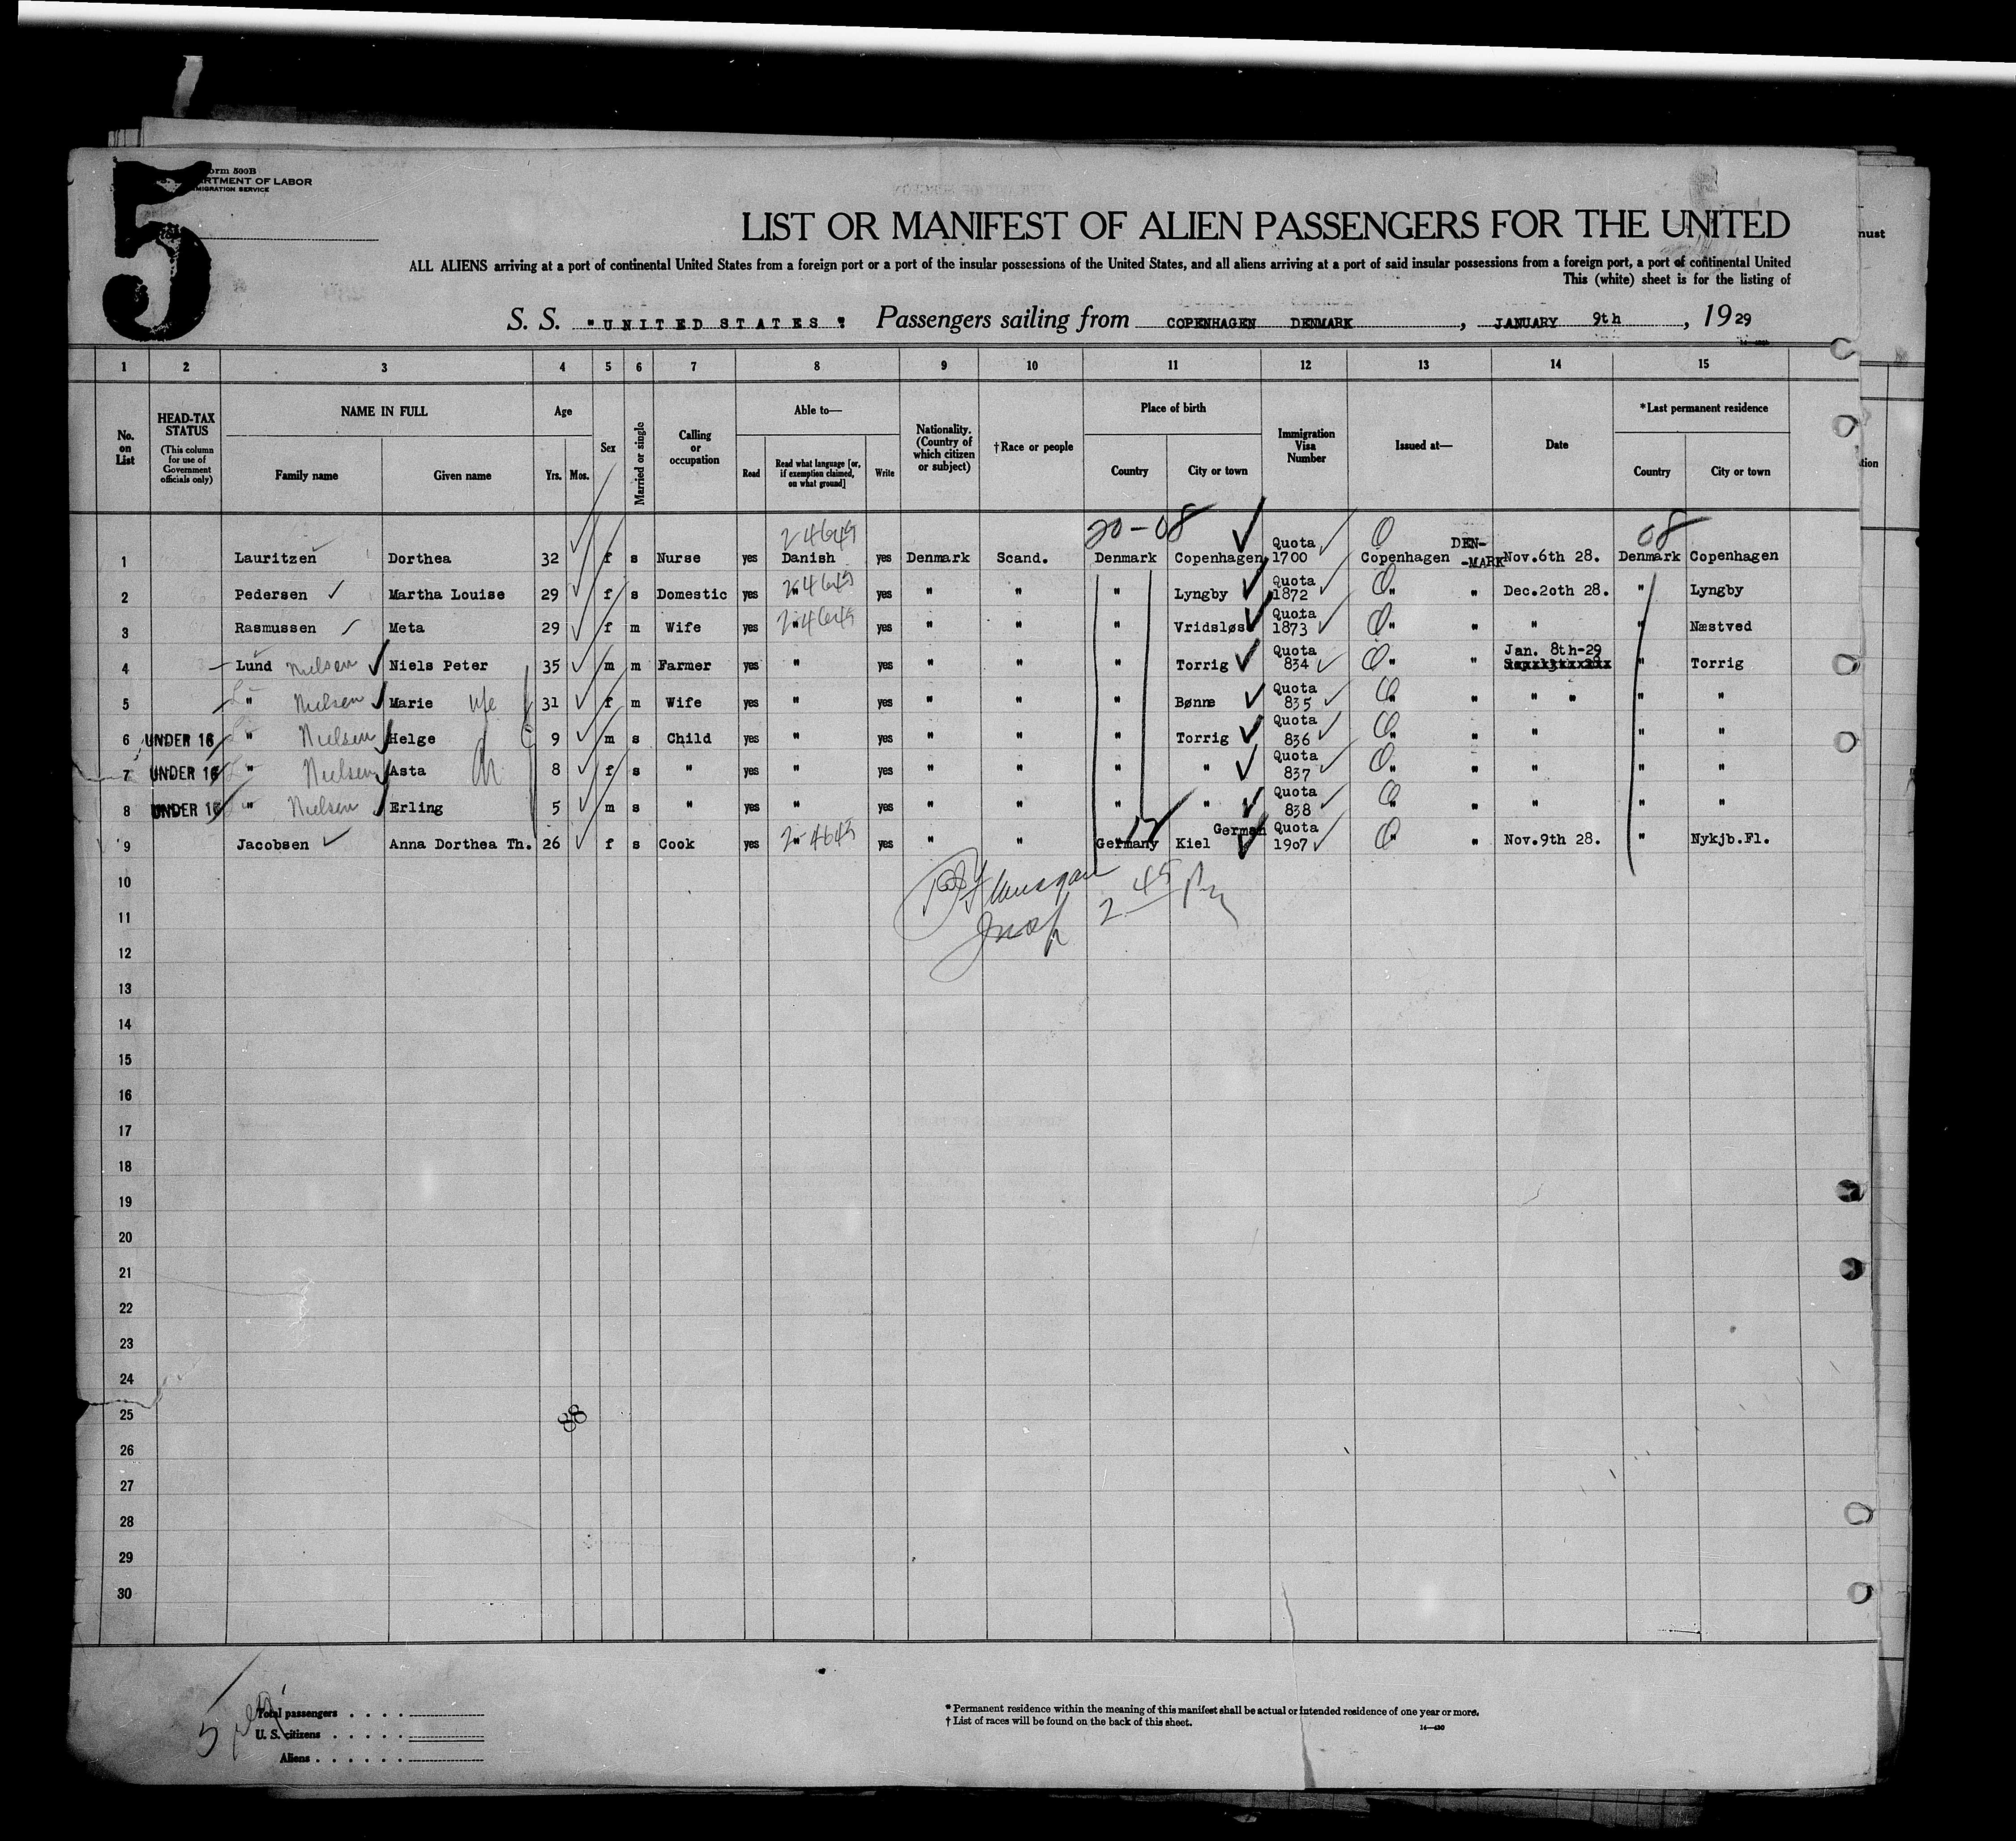 5
orm 500B
RTMENT OF LABOR
MIGRATION SERVICE
LIST OR MANIFEST OF ALIEN PASSENGERS FOR THE UNITED
ALL ALIENS arriving at a port of continental United States from a foreign port or a port of the insular possessions of the United States, and all aliens arriving at a port of said insular possessions from a foreign port, a port of continental United
This (white) sheet is for the listing of
S. S. "UNITED STATES" Passengers sailing from COPENHAGEN DENMARK, JANUARY 9th, 1929
1 2 3 4 5 6 7 8 9 10 11 12 13 14 15
No. on List
HEAD-TAX STATUS (This column for use of Government officials only)
NAME IN FULL
Family name Given name
Age
Yrs. Mos.
Sex
Married or single
Calling or occupation
Able to—
Read
Read what language [or, if exemption claimed, on what ground]
Write
Nationality. (Country of which citizen or subject)
†Race or people
Place of birth
Country City or town
Immigration Visa Number
Issued at—
Date
*Last permanent residence
Country City or town
24645 20-08 08
1 Lauritzen Dorthea 32 f s Nurse yes Danish yes Denmark Scand. Denmark Copenhagen Quota 1700 Copenhagen DEN- -MARK Nov.6th 28. Denmark Copenhagen
2 Pedersen Martha Louise 29 f s Domestic yes " 24645 yes " " " Lyngby Quota 1872 " " Dec.2oth 28. " Lyngby
3 Rasmussen Meta 29 f m Wife yes " 24645 yes " " " Vridsløse Quota 1873 " " " " Næstved
4 Lund Nielsen Niels Peter 35 m m Farmer yes " yes " " " Torrig Quota 834 " " Jan. 8th-29 " Torrig
5 " Nielsen Marie wfe 31 f m Wife yes " yes " " " Bønne Quota 835 " " " " " "
6 UNDER 16 " Nielsen Helge 9 m s Child yes " yes " " " Torrig Quota 836 " " " " "
7 UNDER 16 " Nielsen Asta Ch 8 f s " yes " yes " " " " Quota 837 " " " " "
8 UNDER 16 " Nielsen Erling 5 m s " yes " yes " " " " Quota 838 " " " " "
9 Jacobsen Anna Dorthea Th. 26 f s Cook yes " 24645 yes " " Germany Kiel German Quota 19o7 " " Nov.9th 28. " Nykjb.Fl.
10
11 Insp 2 45 Pm
12
13
14
15
16
17
18
19
20
21
22
23
24
25 88
26
27
28
29
30
5
Total passengers
U. S. citizens
Aliens
* Permanent residence within the meaning of this manifest shall be actual or intended residence of one year or more.
† List of races will be found on the back of this sheet.
14—430
nust
tion